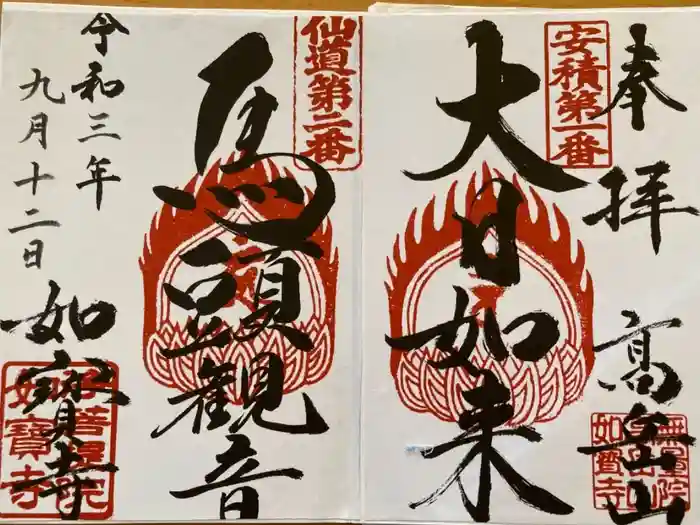 奉拝
高岳山
安積第一番
大日如来
仙道第二番
馬頭観音
令和三年
九月十二日
如宝寺
如寶寺